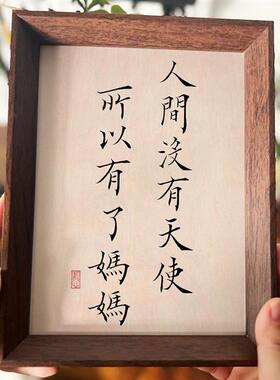 人間沒有天使
所以有了媽媽